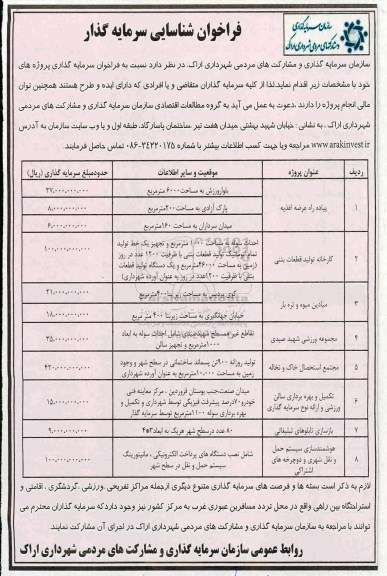 سازمان سرمایه گذاری
و مشارکت های مردمی شهرداری اراک
فراخوان شناسایی سرمایه گذار
سازمان سرمایه گذاری و مشارکت های مردمی شهرداری اراک، در نظر دارد نسبت به فراخوان سرمایه گذاری پروژه های
خود با مشخصات زیر اقدام نماید.لذا از کلیه سرمایه گذاران متقاضی و یا افرادی که دارای ایده و طرح هستند همچنین توان
مالی انجام پروژه را دارند ،دعوت به عمل می آید به گروه مطالعات اقتصادی سازمان سرمایه گذاری و مشارکت های مردمی
شهرداری اراک ، به نشانی : خیابان شهید بهشتی میدان هفت تیر ،ساختمان پاسارگاد، طبقه اول و یا وب سایت سازمان به آدرس
www.arakinvest.ir مراجعه ویا جهت کسب اطلاعات بیشتر با شماره ۳۴۲۲۰۱۷۵-۰۸۶ تماس حاصل فرمایند.
ردیف عنوان پروژه موقعیت و سایر اطلاعات حدودمبلغ سرمایه گذاری (ریال)
۱ پیاده راه عرضه اغذیه بلوارورزش به مساحت۶۰۰۰مترمربع ۲۷,۰۰۰,۰۰۰,۰۰۰
پارک آزادی به مساحت۲۰۰مترمربع ۸,۰۰۰,۰۰۰,۰۰۰
میدان سرداران به مساحت ۱۶۰مترمربع ۶,۰۰۰,۰۰۰,۰۰۰
۲ کارخانه تولید قطعات بتنی احداث سوله به مساحت ۱۰۰۰ مترمربع و تجهیز یک خط تولید ۱۰۰,۰۰۰,۰۰۰,۰۰۰
تمام اتوماتیک تولید قطعات بتنی با ظرفیت ۱۲۰۰ عدد در روز
(زمین به مساحت ۴۶۰۰۰مترمربع و یک دستگاه تولید قطعات
بتنی با ظرفیت ۱۲۰۰عدد در روز به عنوان آورده شهرداری)
۳ میادین میوه و تره بار کوی پردیس به مساحت زیربنا۴۰۰مترمربع ۲۱,۰۰۰,۰۰۰,۰۰۰
خیابان جهانگیری به مساحت زیربنا ۴۰۰ متر مربع ۱۸,۰۰۰,۰۰۰,۰۰۰
۴ مجموعه ورزشی شهید صیدی تقاطع غیر همسطح شهیدصیدی شامل احداث سوله به ابعاد ۳۵,۰۰۰,۰۰۰,۰۰۰
۱۰۰۰مترمربع و تجهیز سالن
۵ مجتمع استحصال خاک و نخاله تولید روزانه ۹۰۰تن پسماند ساختمانی در سطح شهر و وجود ۴۲۰,۰۰۰,۰۰۰,۰۰۰
زمین به مساحت ۱۰,۰۰۰مترمربع به عنوان آورده شهرداری
۶ تکمیل و بهره برداری سالن ورزشی و ارائه نوع سرمایه گذاری میدان صنعت،جنب بوستان فروردین ، مرکز معاینه فنی ۱۵,۰۰۰,۰۰۰,۰۰۰
خودرو۷۰درصد پیشرفت فیزیکی توسط شهرداری و تکمیل و
بهره برداری سوله ۱۱۰۰مترمربع توسط سرمایه گذار
۷ بازسازی تابلوهای تبلیغاتی ۸۰ عدد درسطح شهر هریک به ابعاد ۳*۴ ۹,۰۰۰,۰۰۰,۰۰۰
۸ هوشمندسازی سیستم حمل و نقل شهری و دوچرخه های اشتراکی شامل نصب دستگاه های پرداخت الکترونیکی ، مانیتورینگ ۱۰۰,۰۰۰,۰۰۰,۰۰۰
سیستم حمل و نقل در سطح شهر
لازم به ذکر است بسته ها و فرصت های سرمایه گذاری متنوع دیگری ازجمله مراکز تفریحی ،ورزشی ،گردشگری ، اقامتی و
استراحتگاه بین راهی واقع در محل تردد مسافرین عبوری غرب به مرکز کشور نیز وجود داردکه سرمایه گذاران محترم می
توانند با مراجعه به سازمان سرمایه گذاری و مشارکت های مردمی شهرداری اراک در اجرای آن مشارکت نمایند.
روابط عمومی سازمان سرمایه گذاری و مشارکت های مردمی شهرداری اراک